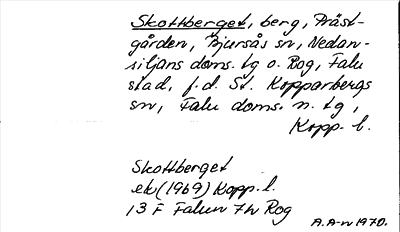 Skottberget, berg, Präst-
gården, Bjursås sn, Nedan-
siljans doms. tg o. Rog, Falu
stad, f.d. St. Kopparbergs
sn, Falu doms. n. tg,
Kopp. l.
Skottberget
ek (1969) Kopp. l.
13 F Falun 7h Rog
A.A-n 1970.